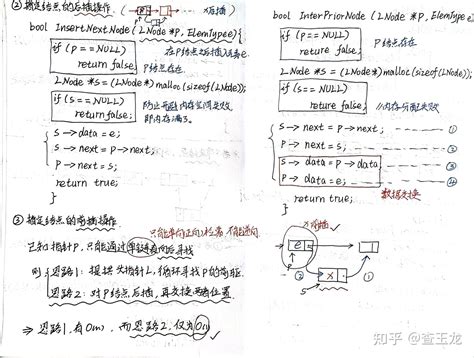 ②指定结点的后插操作
后插
bool InsertNextNode (LNode *P, ElemType e){
if (P == NULL)
return false;
在P结点之后插入元素e
P结点存在
LNode *s = (LNode*)malloc(sizeof(LNode));
if (s == NULL)
return false;
即内存满了.
s → data = e;
s → next = P → next;
P → next = s;
return true;
}
③指定结点的前插操作
只能单向正向检索 不能逆向
已知指针P, 只能通过单链表向后寻找
则 {思路1: 提供头指针L, 循环寻找P的前驱.
思路2: 对P结点后插, 再交换两者位置.
⇒ 思路1, 有O(n), 而思路2, 仅为O(1)
bool InterPriorNode (LNode *P, ElemType e){
if (P == NULL)
return false;
P结点存在
LNode *s = (LNode*)malloc(sizeof(LNode));
if (s == NULL)
return false;
//内存分配失败
s → next = P → next; ①
P → next = s; ②
s → data = P → data; ③
P → data = e; ④
数据交换
return true;
}
X前插
e
P
X
②
①
s
知乎 @查玉龙